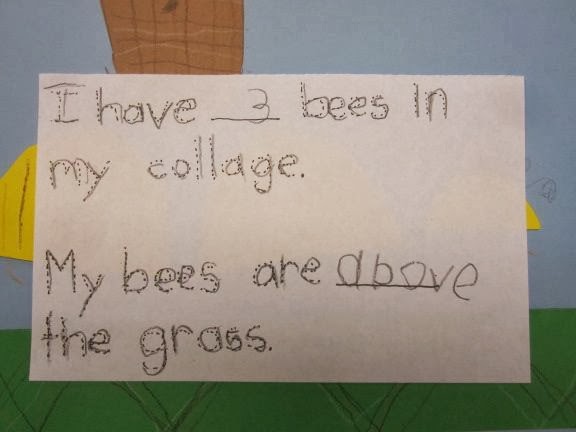 I have 3 bees in
my collage.
My bees are above
the grass.